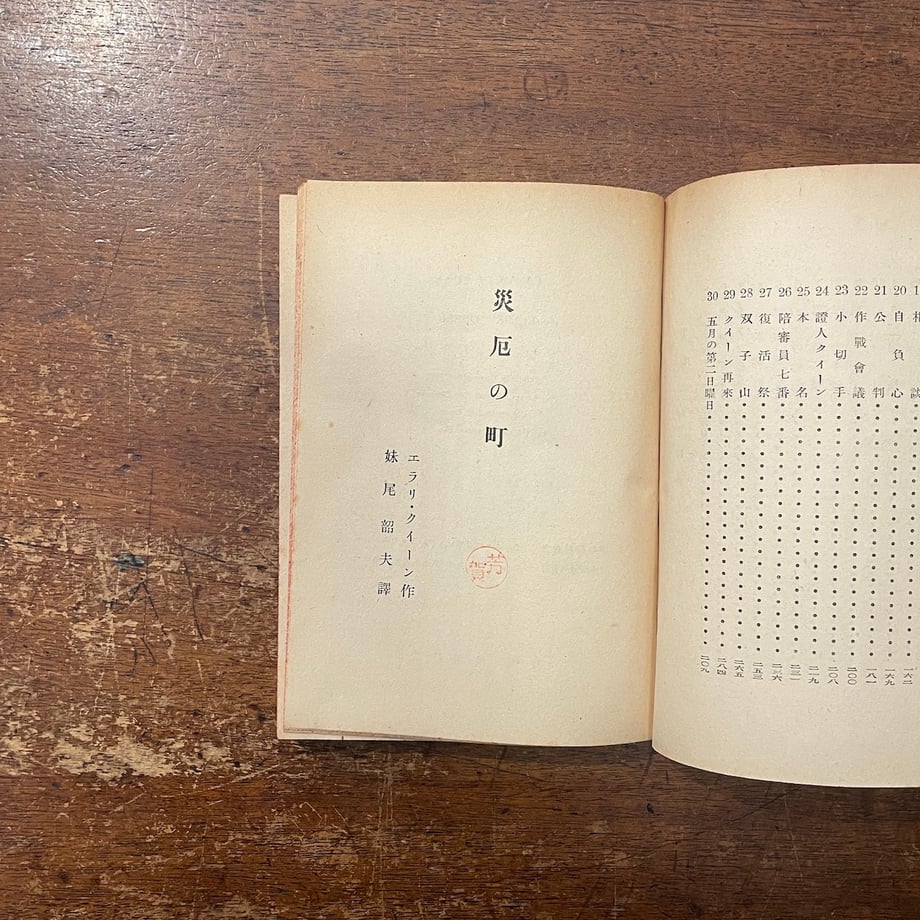 相談 一六二
20 自負心 一六九
21 公判 一八一
22 作戰會議 二〇〇
23 小切手 二〇八
24 證人クイーン 二一九
25 本名 二三一
26 陪審員七番 二三六
27 復活祭 二五三
28 双子山 二六五
29 クイーン再來 二八四
30 五月の第二日曜日 二〇九
災厄の町
エラリ・クイーン作
妹尾韶夫譯
芳賀